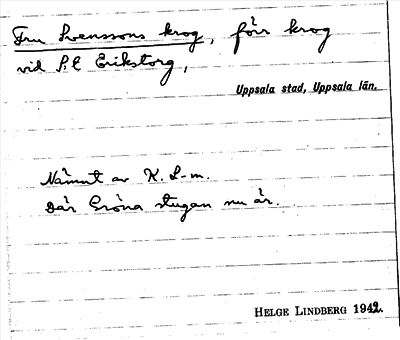 Fru Svenssons krog, förr krog
vid S:t Erikstorg,
Uppsala stad, Uppsala län.
Nämnt av K. L-m.
Där Gröna stugan nu är.
HELGE LINDBERG 1942.